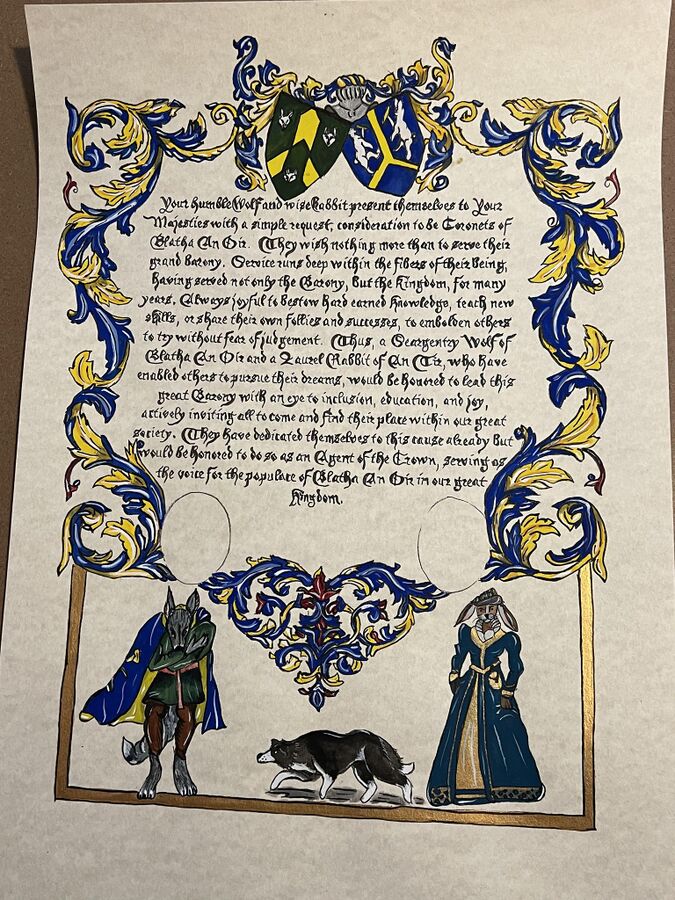 Your humble Wolf and wise Rabbit present themselves to Your
Majesties with a simple request, consideration to be Coronets of
Blatha An Oir. They wish nothing more than to serve their
grand barony. Service runs deep within the fibers of their being,
having served not only the Barony, but the Kingdom, for many
years. Always joyful to bestow hard earned knowledge, teach new
skills, or share their own follies and successes, to embolden others
to try without fear of judgement. Thus, a Geargentry Wolf of
Blatha An Oir and a Laurel Rabbit of An Tir, who have
enabled others to pursue their dreams, would be honored to lead this
great Barony with an eye to inclusion, education, and joy,
actively inviting all to come and find their place within our great
society. They have dedicated themselves to this cause already but
would be honored to do so as an Agent of the Crown, serving as
the voice for the populace of Blatha An Oir in our great
Kingdom.